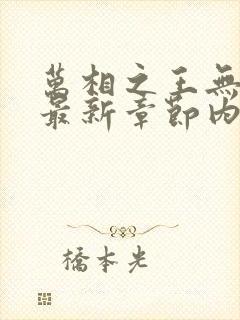 萬相之王無
最新章節內
橋本光